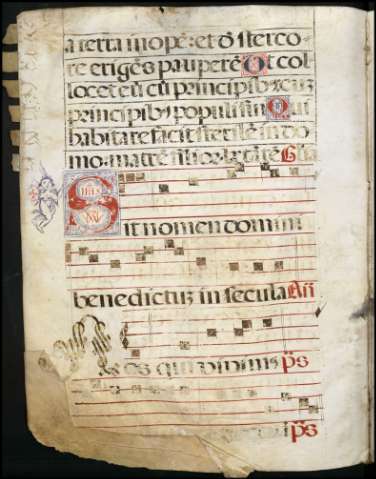 a terra inopē: et d̄ sterco-
re erigēs pauperē Ut col-
locet eū cū principibꝰ: cuꝫ
principibꝰ populi sui Qui
habitare facit sterilē in do-
mo: matrē filioꝝ lętātē Gl̄ia
Sit nomen domini
benedictuꝫ in secula Añ
Nos qui vivimus p̄s
p̄s